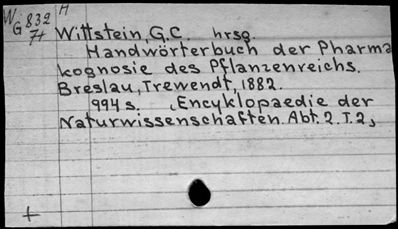 W. H
G 832
7+
Wittstein, G.C. hrsg.
Handwörterbuch der Pharma
kognosie des Pflanzenreichs.
Breslau, Trewendt, 1882.
994 s. (Encyklopaedie der
Naturwissenschaften. Abt. 2. T. 2)
+